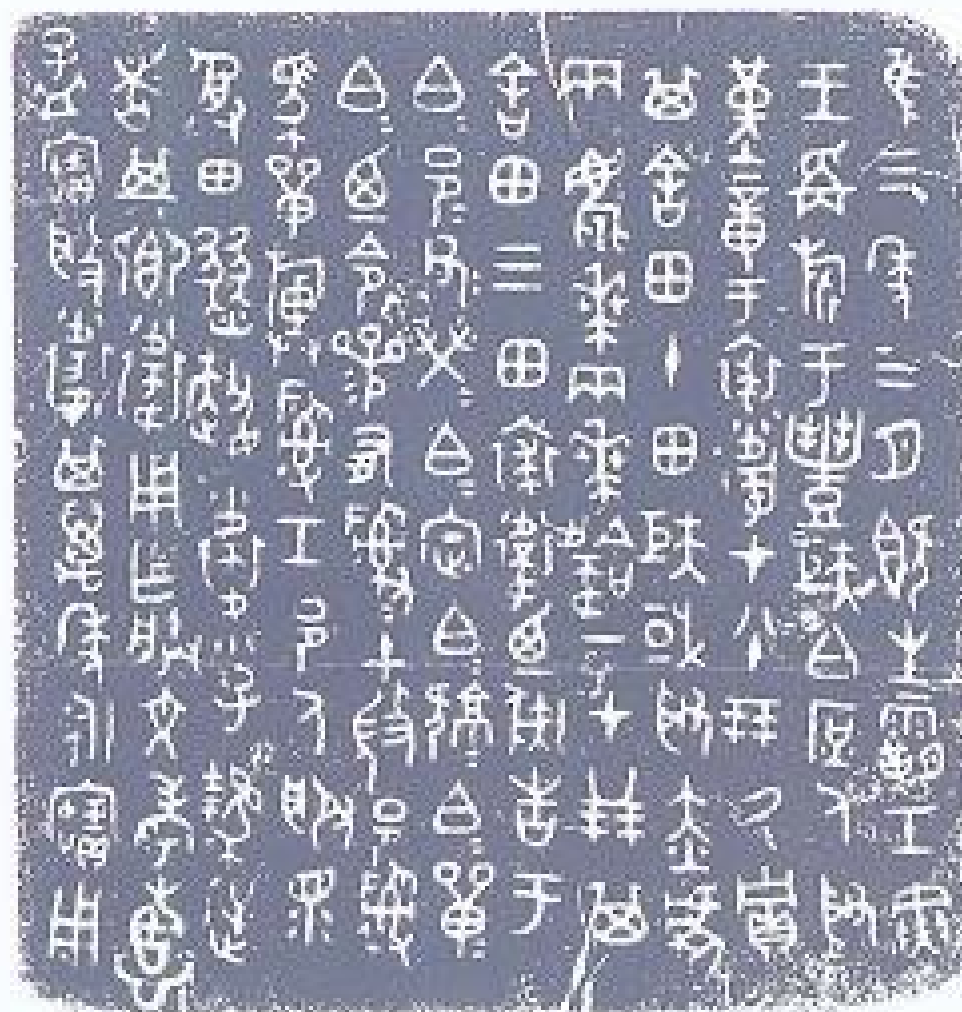 隹三年三月既生霸壬寅
王爯旂于豐矩白庶人取
堇章于裘衛才八十朋厥貯
其舍田十田矩或取赤虎
兩麀𠦪兩𠦪韐一才廿朋其
舍田三田裘衛迺彘告于
白邑父榮白定白𤨒白單
白迺令參有司土微邑司
馬單旟司工邑人服眾
受田燹趞衛小子逆
者其鄉衛用乍朕文考惠孟
寶般衛其萬年永寶用